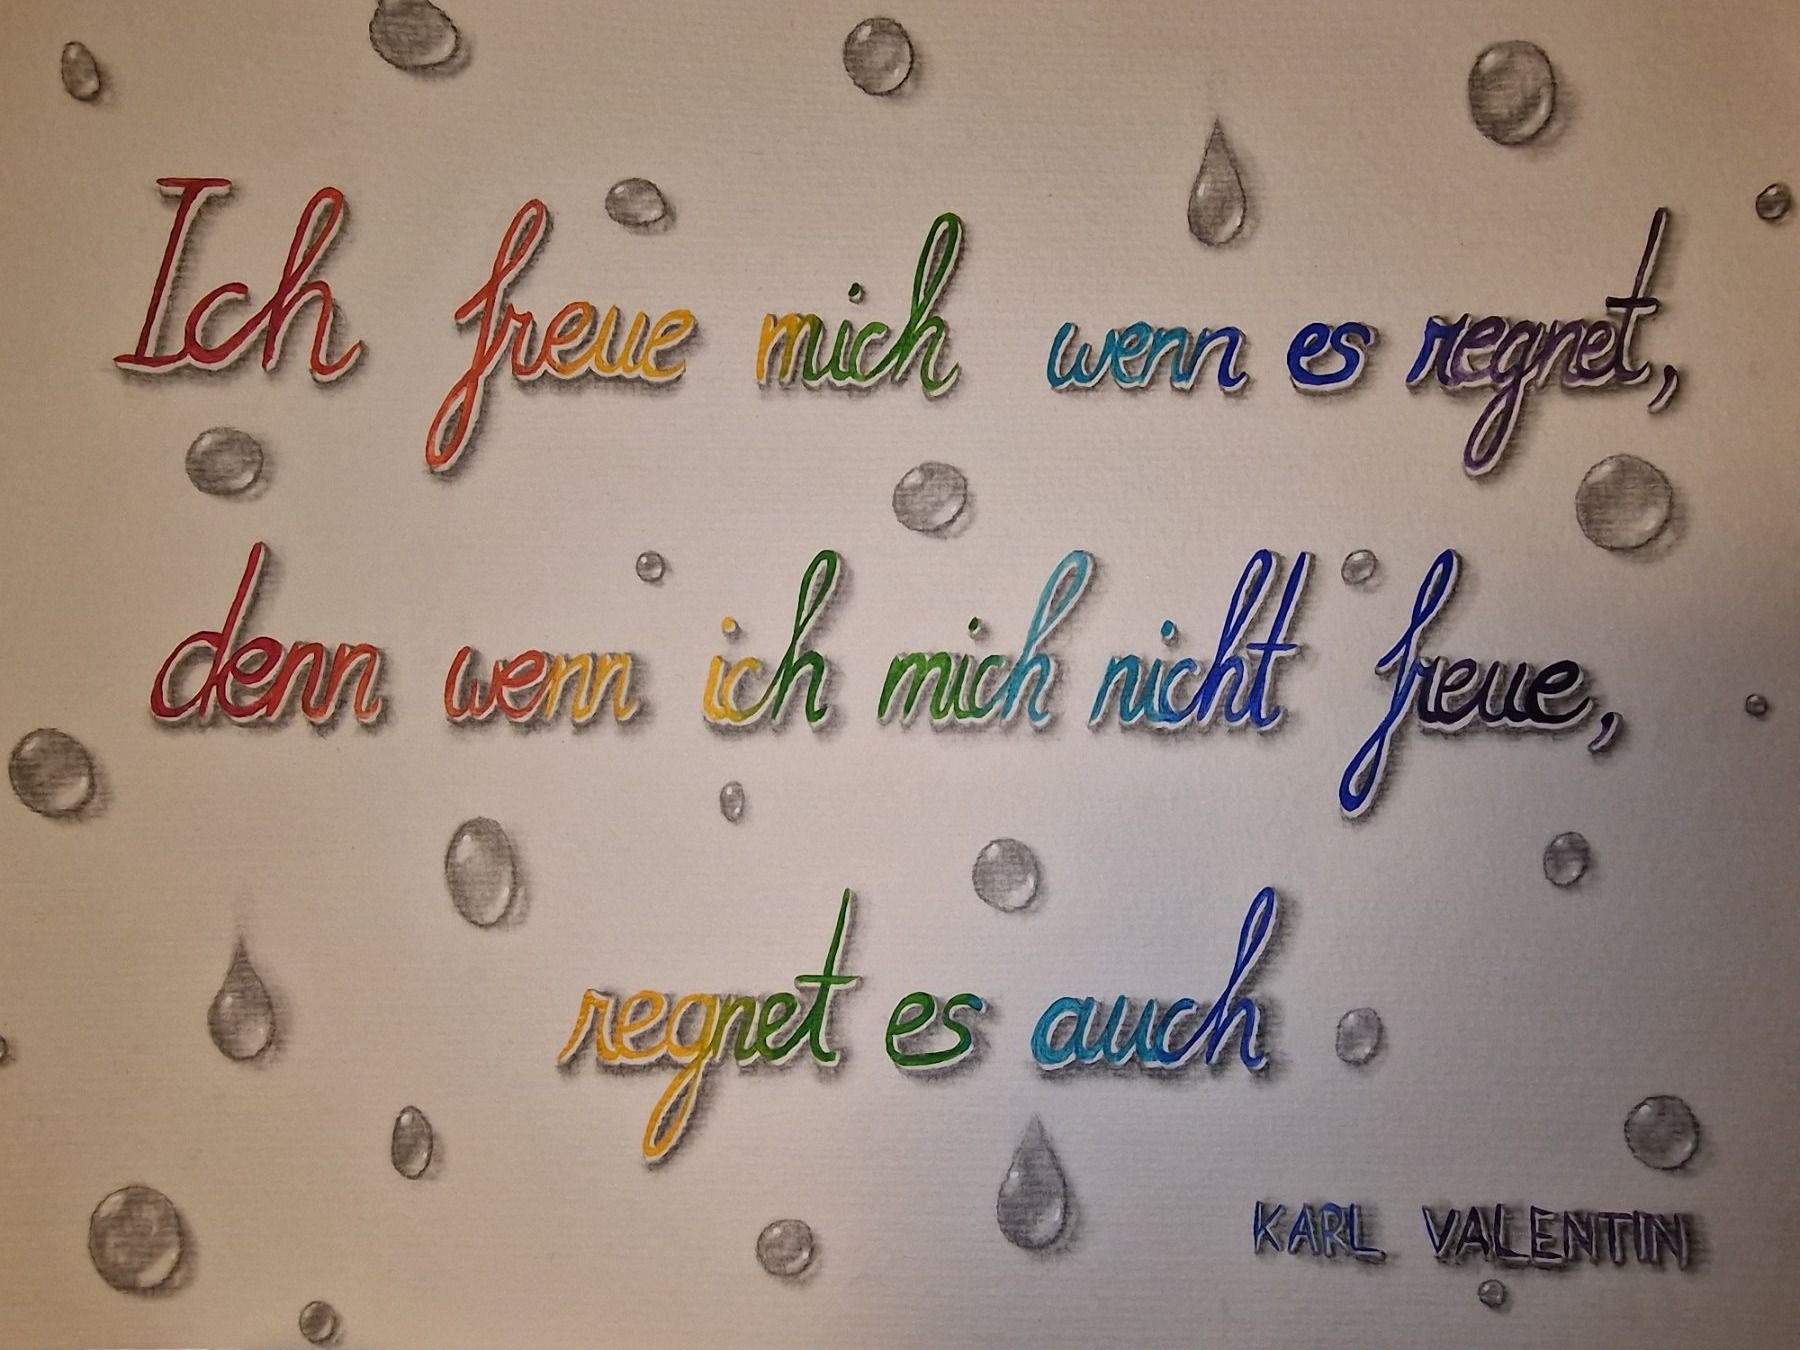 Ich freue mich wenn es regnet,
denn wenn ich mich nicht freue,
regnet es auch
KARL VALENTIN